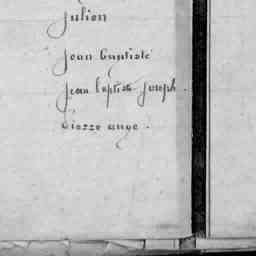 Julien
jean baptiste
jean baptiste joseph.
pierre ange.